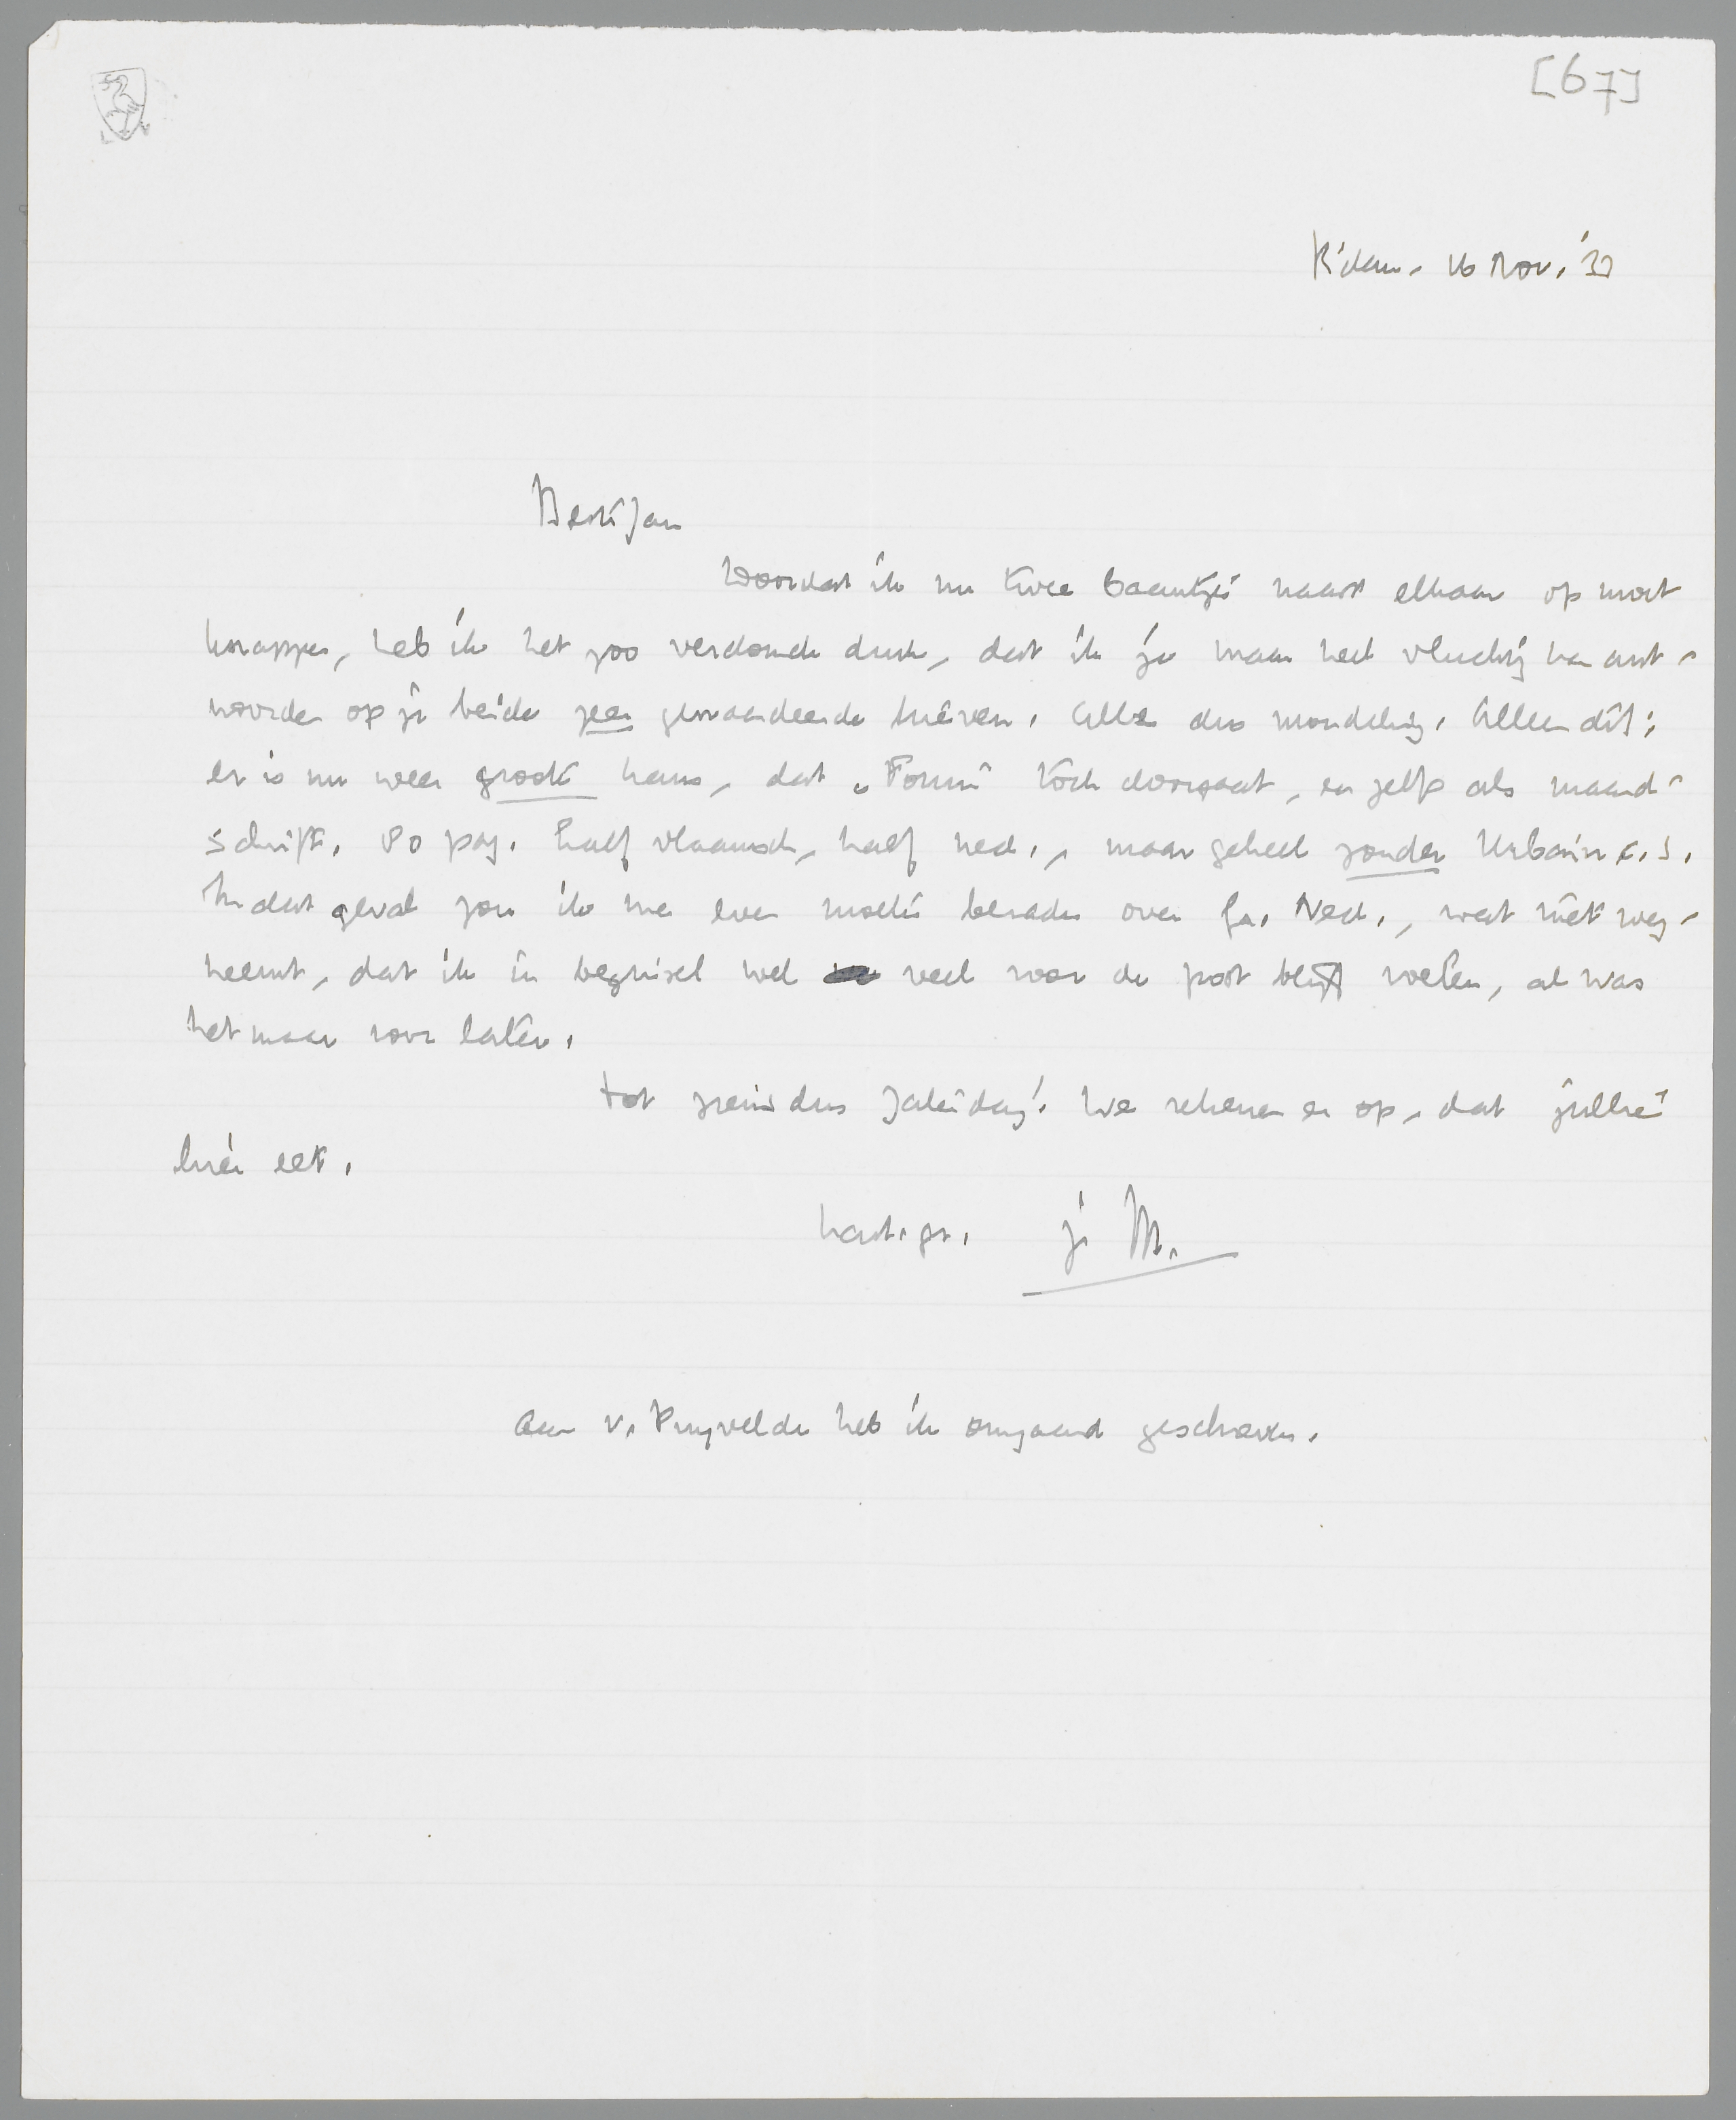 [67]
R'dam, 16 Nov. '33
Beste Jan
Doordat ik nu twee baantjes naast elkaar op moet
knappen, heb ik het zoo verdomde druk, dat ik je maar heel vluchtig kan ant-
woorden op je beide zeer gewaardeerde brieven. Alles dus mondeling. Alleen dit:
er is nu weer groote kans, dat „Forum" tòch doorgaat, en zelfs als maand-
schrift. 80 pag. half vlaamsch, half ned., maar geheel zonder Urbain c.s.
In dat geval zou ik me even moeten beraden over Gr. Ned., wat niet weg-
neemt, dat ik in beginsel wel veel voor de post blijf voelen, al was
het maar voor later.
Tot ziens dus Zaterdag! We rekenen er op, dat jullie
hier eet.
hart. gr. je M.
Aan v. Puyvelde heb ik omgaand geschreven.